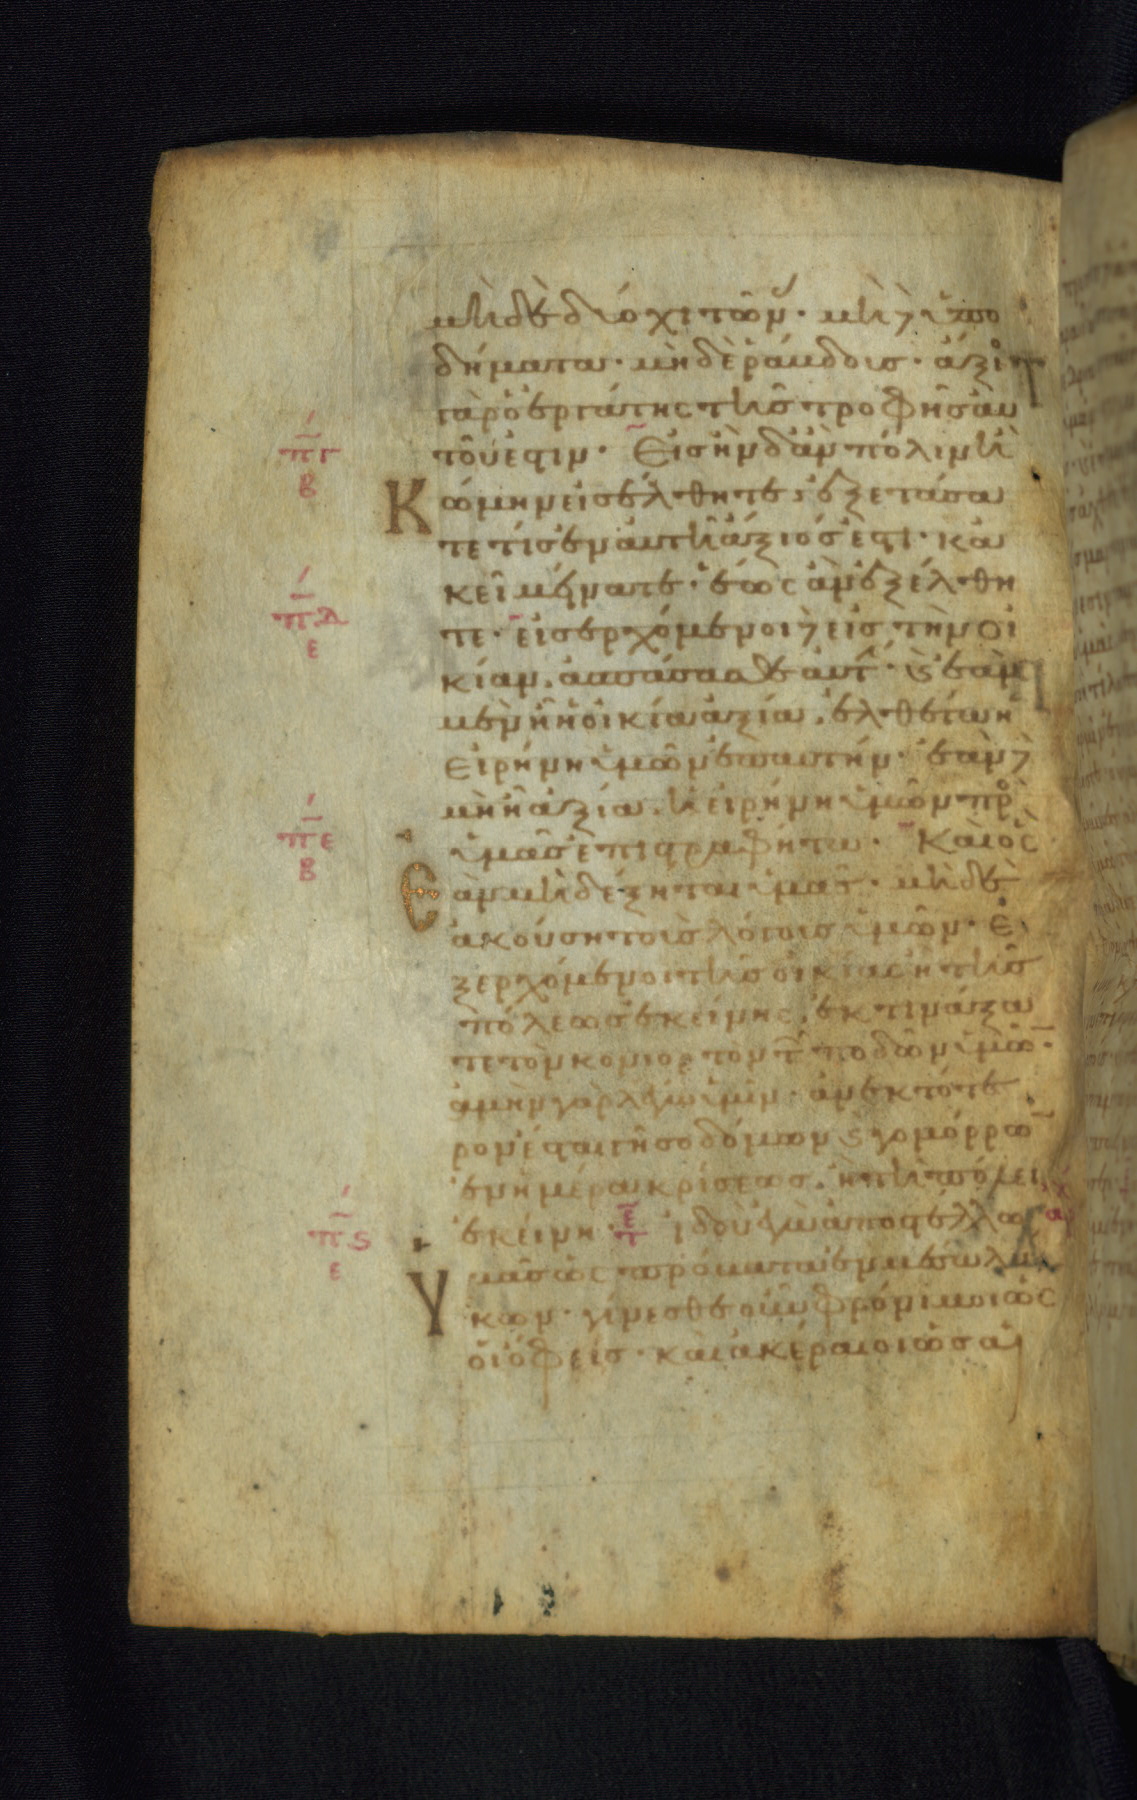 μηδὲ δύο χιτῶν· μηδὲ ὑπο
δήματα· μηδὲ ῥάβδοις· ἄξιος
γὰρ ὁ ἐργάτης τῆς τροφῆς αὐ
τοῦ ἐστιν· Εἰς ἣν δ᾽ ἂν πόλιν ἢ
Κώμην εἰσέλθητε, ἐξετάσα
τε τίς ἐν αὐτῆ ἄξιός ἐστι· κα
κεῖ μείνατε· ἕως ἂν ἐξέλθη
τε· εἰσερχόμενοι δὲ εἰς τὴν οἰ
κίαν, ἀσπάσασθε αὐτ· ϗ ἐὰν
μὲν ἦ ἡ οἰκία ἀξία, ἐλθέτω ἡ
εἰρήνη ὑμῶν ἐπ αυτήν· ἐὰν δὲ
μὴ ἦ ἀξία, ἡ εἰρήνη ὑμῶν πρ
ὑμᾶς ἐπιστραφήτω· Καὶ ὃς
Ἐὰν μὴ δέξηται ὑμᾶς· μηδὲ
ἀκούση τοὺς λόγους ὑμῶν· ἐ
ξερχόμενοι τῆς οἰκίας ἢ τῆς
πόλεως ἐκείνης, ἐκτινάξα
τε τὸν κονιορτὸν τ ποδῶν ὑμῶ·
ἀμὴν γὰρ λέγω ὑμῖν· ἀνεκτότε
ρον ἔσται γῆ σοδόμων ϗ γομόρρω
ἐν ἡμέρα κρίσεως, ἢ τῆ πόλει
ἐκείνη· ἰδοὺ ἐγὼ ἀποστέλλω
Ὑμᾶς ὡς πρόβατα ἐν μέσω λύ
κων· γίνεσθε οὖν φρόνιμοι ὡς
οἱ ὄφεις· καὶ ἀκέραιοι ὡς αἱ
πγ
β
πδ
ε
πε
β
πϛ
ε